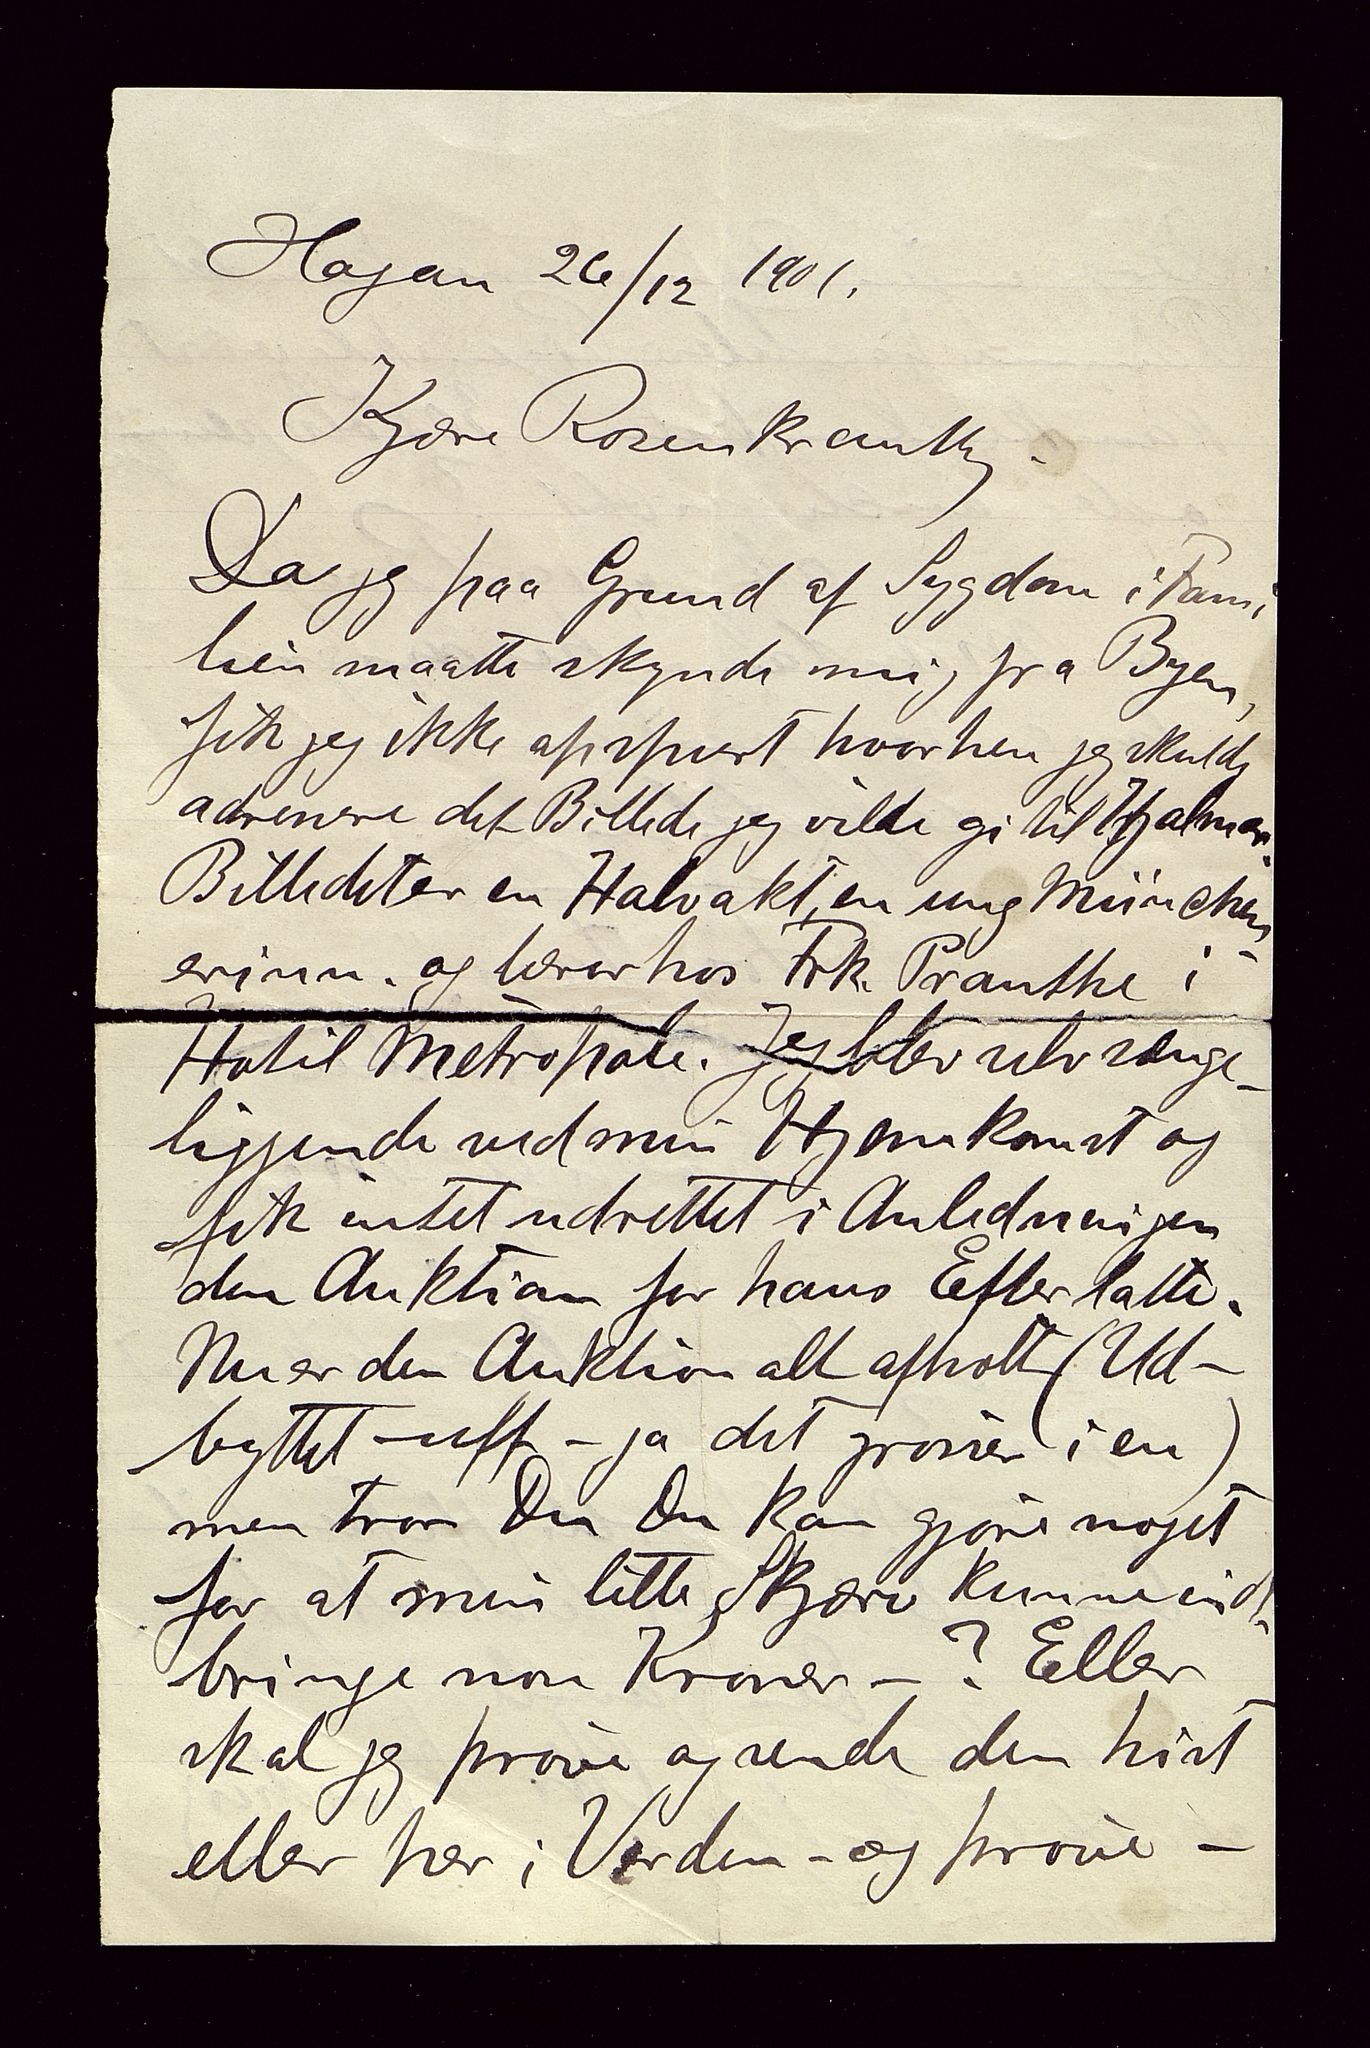 Hagan 26/12 1901.
Kjære Rosenkrantz.
Da jeg paa Grund af Sygdom i Fami
lien maatte skynde mig fra Byen,
fik jeg ikke afspurt hvorhen jeg skulde
adressere det Billede jeg vilde gi til Hjalmar.
Billedet er en Halvakt, en ung München
erinn. og bærer hos Frk. Pranthe i
Hotil Metropole. Jeg blev selv sænge-
liggende ved min Hjemkomst og
fik intet udrettet i Anledningen
den Auktion for hans Efterlatte.
Nu er den Auktion alt afholt (Ud-
byttet - uff - ja det grøsser i en)
men tror Du Du kan gjøre noget
for at min lille Skjærv kunne ind-
bringe non Kroner - ? Eller
skal jeg prøve og sende den hist
eller her i Verden - og prøve -